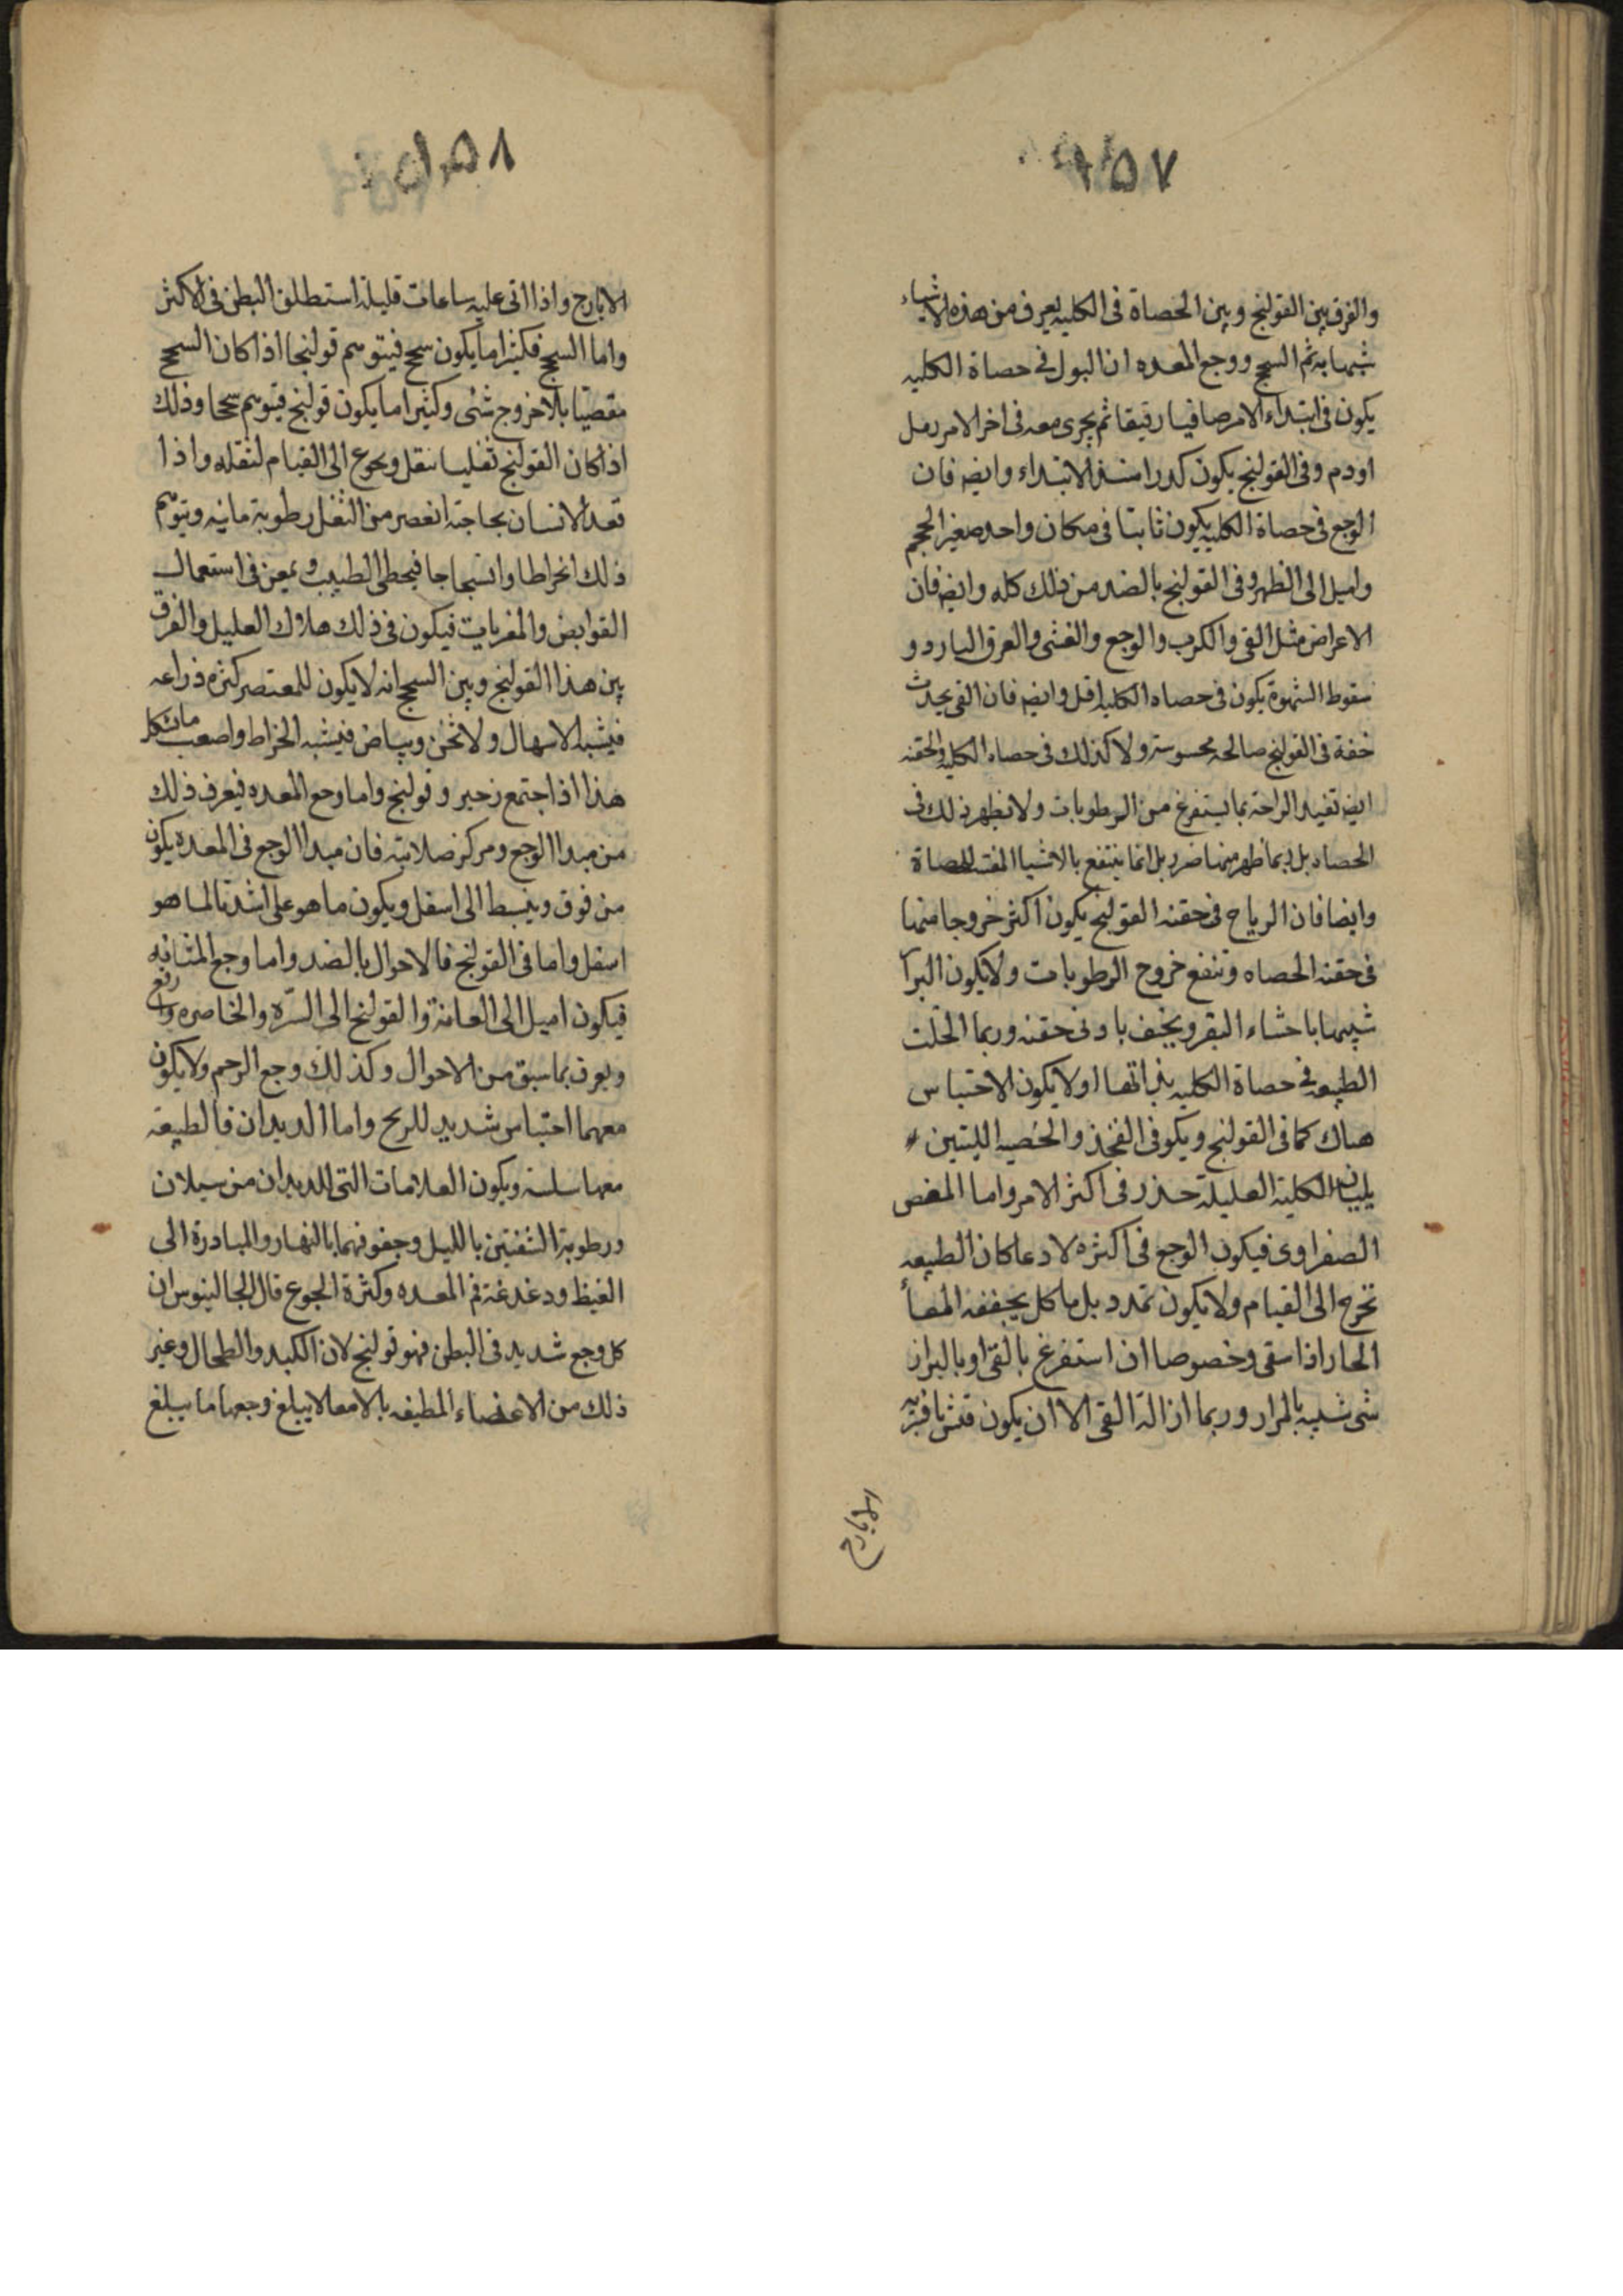 ١٥٧
والفرق بين القولنج وبين الحصاة فى الكليه يعرف من هذه الاشياء
شبها به ثم السحج ووجع المعده ان البول فى حصاة الكليه
يكون فى ابتداء الامر صافيا رقيقا ثم يجرى معه فى اخر الامر رمل
او دم وفى القولنج يكون كدرا منذ الابتداء وايضه فان
الوجع فى حصاة الكليه يكون ثابتا فى مكان واحد صغير الحجم
واميل الى الظهر وفى القولنج بالضد من ذلك كله وايضه فان
الاعراض مثل القى والكرب والوجع والغشى والعرق البارد و
سقوط الشهوة يكون فى حصاه الكليه اقل وايضه فان القى يحدث
خفة فى القولنج صالحه محسوسة ولا كذلك فى حصاه الكليه والحقنه
ايضه تفيد الراحة بما يستفرغ من الرطوبات ولا يظهر ذلك فى
الحصاه بل ربما ظهر منها ضرر بل انما ينتفع بالاشيا المفتتة للحصاة
وايضا فان الرياح فى حقنه القولنج يكون اكثر خروجا منها
فى حقنه الحصاه وتنفع خروج الرطوبات ولا يكون البرا
شبيها باحشاء البقر ويخف بادنى حقنه وربما انحلت
الطبيعه فى حصاة الكليه بذاتها اولا يكون الاحتباس
هناك كما فى القولنج ويكو فى الفخذ والخصيه الليتين
يليان الكلية العليلة خدر فى اكثر الامر واما المغص
الصفراوى فيكون الوجع فى اكثره لادعا كان الطبيعه
تخرج الى القيام ولا يكون تمدد بل ماكل يجففه المعأ
الحار اذا سقى وخصوصا ان استفرغ بالقى او بالبراز
شى شبيه بالمرار وربما ازالة القى الا ان يكون
الايارج
١٥٨
الايارج واذا اتى عليه ساعات قليلة استطلق البطن فى الاكثر
واما السحج فكثيرا ما يكون سحج فيتوهم قولنجا اذا كان السحج
مغصيا بلا خروج شئى وكثيرا ما يكون قولنج فيتوهم سحجا وذلك
اذا كان القولنج ثفليا ينقل ويحوج الى القيام لنقله واذا
قعد الانسان بحاجته انعصر من الثفل رطوبة مانيه ويتوهم
ذلك انخراطا وانسحاجا فيخطى الطبيب ويمعن فى استعمال
القوابض والمغريات فيكون فى ذلك هلاك العليل والفرق
بين هذا القولنج وبين السحج انه لا يكون للمعتصر كثره ذراعه
فيشبه الاسهال ولا ثخن وبياض فيشبه الخراط واصعب مايشكل
هذا اذا اجتمع زحير وقولنج واما وجع المعده فيعرف ذلك
من مبدا الوجع ومركز صلابته فان مبدا الوجع فى المعده يكون
من فوق وينبسط الى اسفل ويكون ما هو على اشد تالما هو
اسفل واما فى القولنج فالاحوال بالضد واما وجع المثانه
فيكون اميل الى العانة والقولنج الى السرّه والخاصره وارفع
ويعرف بما سبق من الاحوال وكذلك وجع الرحم ولا يكون
معهما احتباس شديد للريح واما الديدان فالطبيعه
معها سلسة ويكون العلامات التى للديدان من سيلان
ورطوبة الشفتين بالليل وجفوفهما بالنهار والمبادرة الى
الغيظ ودغدغة فم المعده وكثرة الجوع قال الجالينوس ان
كل وجع شديد فى البطن فهو قولنج لان الكبد والطحال وغير
ذلك من الاعضاء المطيفه بالامعا لا يبلغ وجعها ما يبلغ